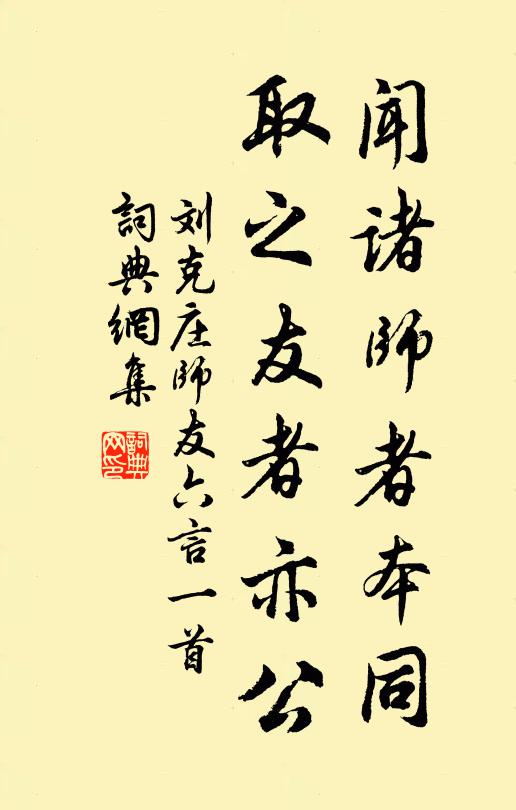 闻诸师者本同
取之友者亦公
刘克庄师友六言一首
詞典網集
詞典
网印